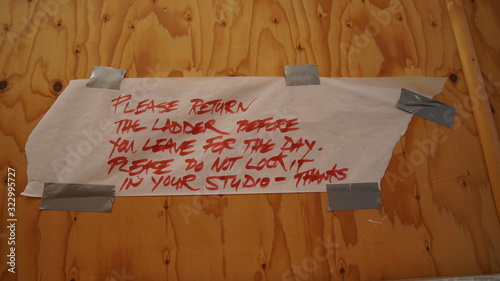 PLEASE RETURN
THE LADDER BEFORE
YOU LEAVE FOR THE DAY.
PLEASE DO NOT LOCK IT
IN YOUR STUDIO - THANKS
Adobe Stock | #322995727